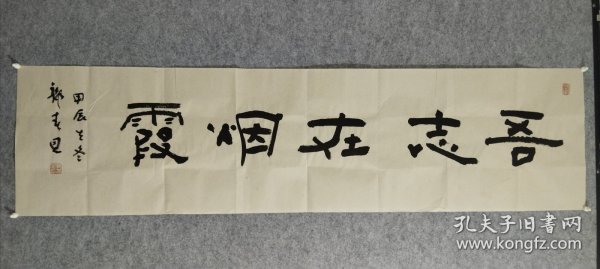 吾志在烟霞
甲辰之冬
孔夫子旧书网
www.kongfz.com